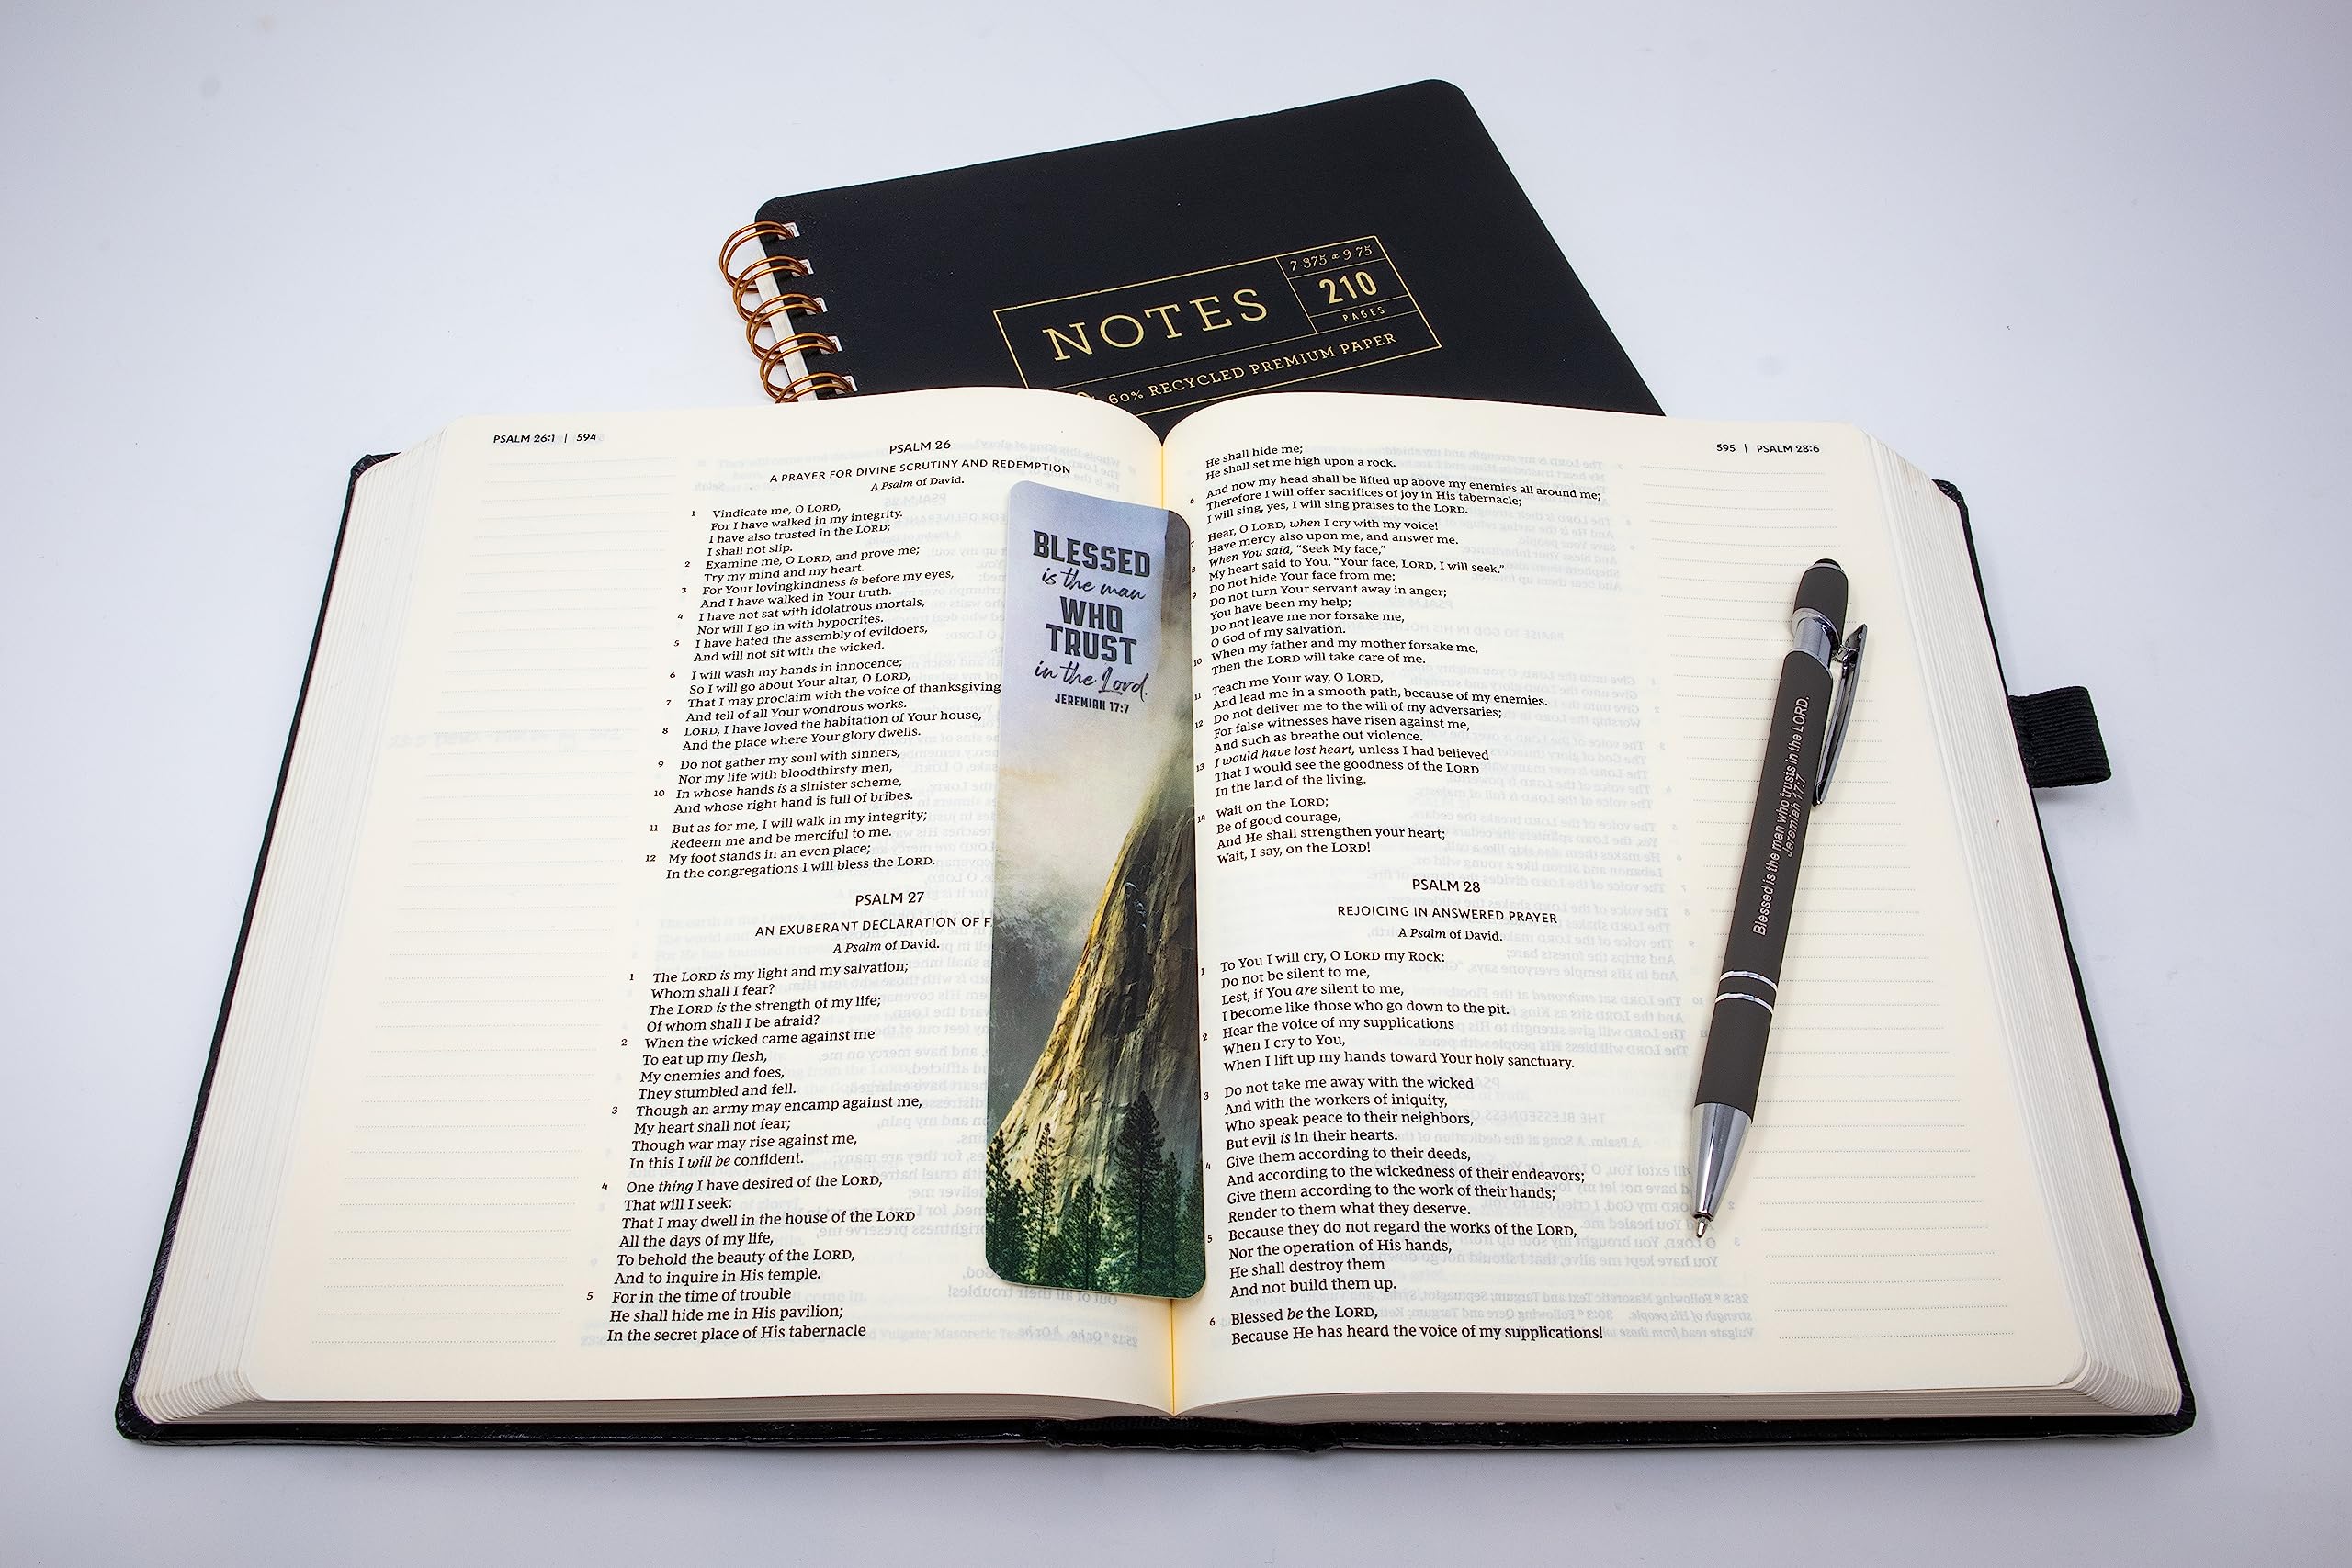 NOTES
7.375 x 9.75
210
PAGES
60% RECYCLED PREMIUM PAPER
PSALM 26:1 | 594
PSALM 26
A PRAYER FOR DIVINE SCRUTINY AND REDEMPTION
A Psalm of David.
1 Vindicate me, O LORD,
For I have walked in my integrity.
I have also trusted in the LORD;
I shall not slip.
2 Examine me, O LORD, and prove me;
Try my mind and my heart.
3 For Your lovingkindness is before my eyes,
And I have walked in Your truth.
4 I have not sat with idolatrous mortals,
Nor will I go in with hypocrites.
5 I have hated the assembly of evildoers,
And will not sit with the wicked.
6 I will wash my hands in innocence;
So I will go about Your altar, O LORD,
7 That I may proclaim with the voice of thanksgiving
And tell of all Your wondrous works.
8 LORD, I have loved the habitation of Your house,
And the place where Your glory dwells.
9 Do not gather my soul with sinners,
Nor my life with bloodthirsty men,
10 In whose hands is a sinister scheme,
And whose right hand is full of bribes.
11 But as for me, I will walk in my integrity;
Redeem me and be merciful to me.
12 My foot stands in an even place;
In the congregations I will bless the LORD.
PSALM 27
AN EXUBERANT DECLARATION OF F
A Psalm of David.
1 The LORD is my light and my salvation;
Whom shall I fear?
The LORD is the strength of my life;
Of whom shall I be afraid?
2 When the wicked came against me
To eat up my flesh,
My enemies and foes,
They stumbled and fell.
3 Though an army may encamp against me,
My heart shall not fear;
Though war may rise against me,
In this I will be confident.
4 One thing I have desired of the LORD,
That will I seek:
That I may dwell in the house of the LORD
All the days of my life,
To behold the beauty of the LORD,
And to inquire in His temple.
5 For in the time of trouble
He shall hide me in His pavilion;
In the secret place of His tabernacle
BLESSED
is the man
WHO
TRUST
in the Lord.
JEREMIAH 17:7
595 | PSALM 28:6
He shall hide me;
He shall set me high upon a rock.
6 And now my head shall be lifted up above my enemies all around me;
Therefore I will offer sacrifices of joy in His tabernacle;
I will sing, yes, I will sing praises to the LORD.
7 Hear, O LORD, when I cry with my voice!
Have mercy also upon me, and answer me.
8 When You said, “Seek My face,”
My heart said to You, “Your face, LORD, I will seek.”
9 Do not hide Your face from me;
Do not turn Your servant away in anger;
You have been my help;
Do not leave me nor forsake me,
O God of my salvation.
10 When my father and my mother forsake me,
Then the LORD will take care of me.
11 Teach me Your way, O LORD,
And lead me in a smooth path, because of my enemies.
12 Do not deliver me to the will of my adversaries;
For false witnesses have risen against me,
And such as breathe out violence.
13 I would have lost heart, unless I had believed
That I would see the goodness of the LORD
In the land of the living.
14 Wait on the LORD;
Be of good courage,
And He shall strengthen your heart;
Wait, I say, on the LORD!
PSALM 28
REJOICING IN ANSWERED PRAYER
A Psalm of David.
1 To You I will cry, O LORD my Rock:
Do not be silent to me,
Lest, if You are silent to me,
I become like those who go down to the pit.
2 Hear the voice of my supplications
When I cry to You,
When I lift up my hands toward Your holy sanctuary.
3 Do not take me away with the wicked
And with the workers of iniquity,
Who speak peace to their neighbors,
But evil is in their hearts.
4 Give them according to their deeds,
And according to the wickedness of their endeavors;
Give them according to the work of their hands;
Render to them what they deserve.
5 Because they do not regard the works of the LORD,
Nor the operation of His hands,
He shall destroy them
And not build them up.
6 Blessed be the LORD,
Because He has heard the voice of my supplications!
Blessed is the man who trusts in the LORD.
Jeremiah 17:7